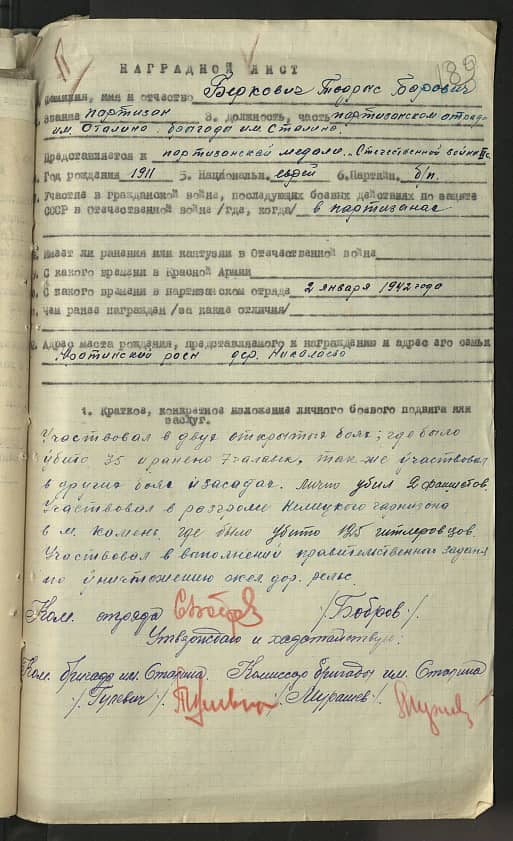 189
НАГРАДНОЙ ЛИСТ
Фамилия, имя и отчество Беркович Борович
звание партизан 3. должность, часть партизанском отряде
им. Сталина бригада им. Сталина.
Представляется к партизанской медали „Отечественной войны" II ст
Год рождения 1911 5. Национальн. еврей 6.Партийн. б/п.
Участие в гражданской войне, последующих боевых действиях по защите
СССР в Отечественной войне /где, когда/ в партизанах
Имеет ли ранения или контузии в Отечественной войне
С какого времени в Красной Армии
С какого времени в партизанском отряде 2 января 1942 года
Чем ранее награжден /за какие отличия/
Адрес места рождения, представляемого к награждению и адрес его семьи
дер. Николаево
1. Краткое, конкретное изложение личного боевого подвига или
заслуг.
Участвовал в двух открытых боях; где было
убито 35 и ранено 7 так же участвовал
в других боях и засадах. лично убил 2 фашистов.
Участвовал в разгроме Немецкого гарнизона
в м. Камень где было убито 125 гитлеровцов.
Участвовал в выполнений правительственног задания
по уничтожению жел. дор. рельс.
Ком. отряда /Бобров/.
Утверждаю и хадатайствую:
Ком. бригады им. Сталина. Комиссар бригады им. Сталина
/Гулевич/. /Мурашев/.